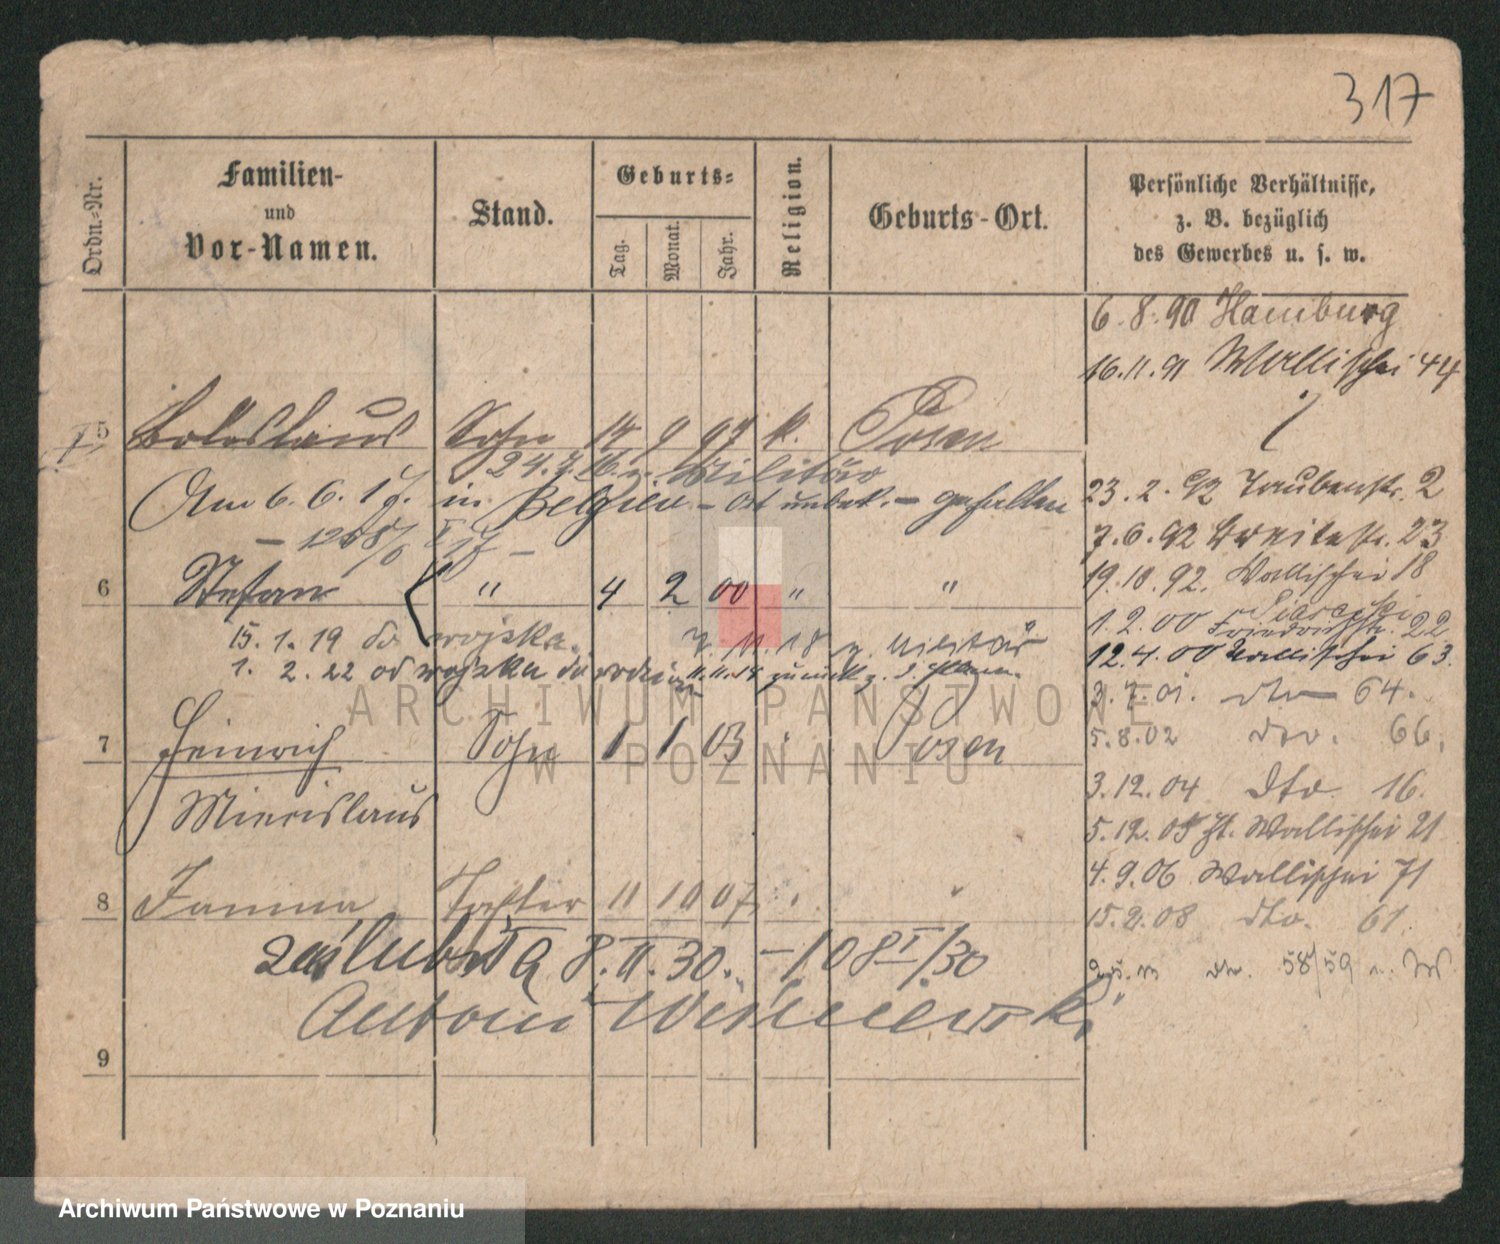 317
Ordn.-Nr.
Familien-
und
Vor-Namen.
Stand.
Geburts-
Tag.
Monat.
Jahr.
Religion.
Geburts-Ort.
Persönliche Verhältnisse,
z. B. bezüglich
des Gewerbes u. s. w.
6.8.90 Hamburg
16.11.91 Wallischei 44
5 Boleslaus Sohn 14 9 97 k. Posen
24.7.16 z. Militär
Am 6. 6. 17. in Belgien - Ort unbek. - gefallen
23.2.92 Taubenstr. 2
7.6.92 Breitestr. 23
6 Stefan " 4 2 00 " "
19.10.92. Wallischei 18
15.1.19 do wojska. 7.11.18 z. Militär
1.2.00 Friedrichstr. 22
1. 2. 22 od wojska do 11.11.18 zurück z.
12.4.00 Wallischei 63.
3.7.01. dto 64.
7 Heinrich Sohn 1 1 03 " Posen
5.8.02 dto. 66.
Miecislaus
3.12.04 dto. 16.
5.12.05 Wallischei 21
4.9.06 Wallischei 71
8 Janina Tochter 11 10 07 " "
15.2.08 dto. 61.
zaślubiła 8.II.30. - 108 I/30
58/59
Antoni Wiśniewski
9
ARCHIWUM PAŃSTWOWE
W POZNANIU
Archiwum Państwowe w Poznaniu